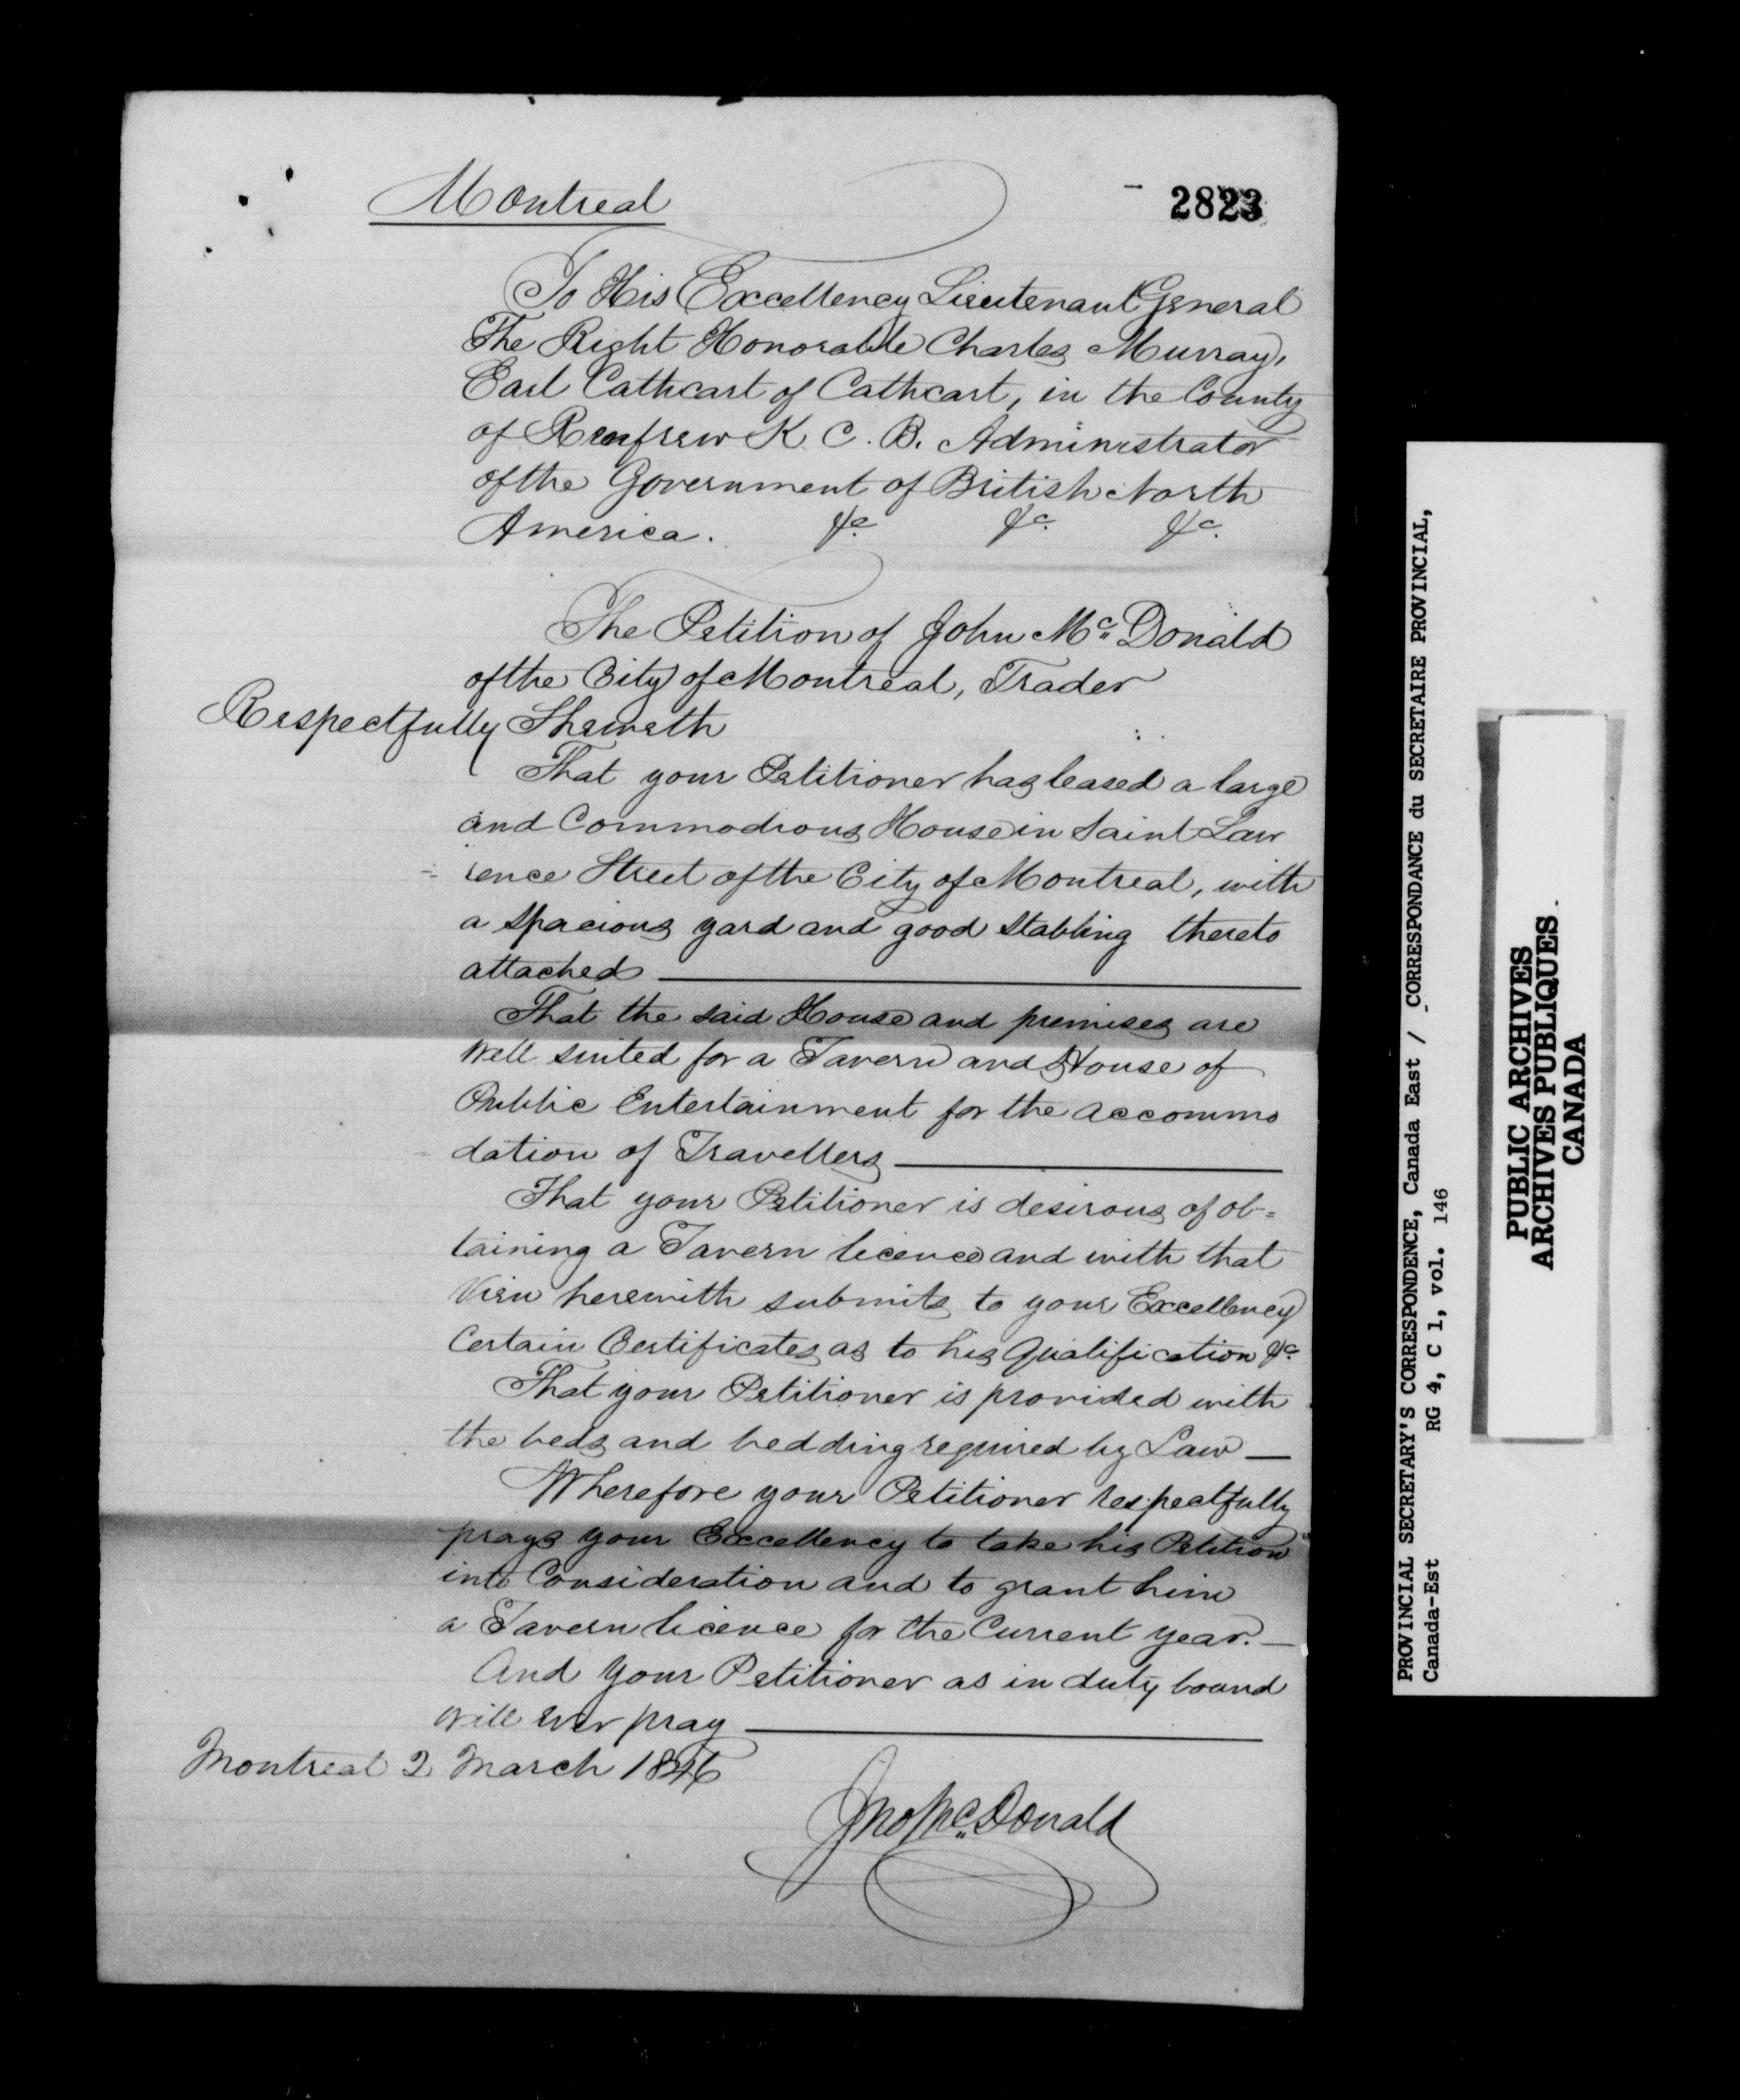 Montreal
2823
To His Excellency Lieutenant General
The Right Honorable Charles Murray,
Earl Cathcart of Cathcart, in the County
of Renfrew K. C. B. Administrator
of the Government of British North
America. &c. &c. &c.
The Petition of John Mc Donald
of the City of Montreal, Trader
Respectfully Sheweth
That your Petitioner has leased a large
and Commodious House in Saint Law
=rence Street of the City of Montreal, with
a spacious yard and good Stabling thereto
attached
That the said House and premises are
well suited for a Tavern and House of
Public Entertainment for the accommo
=dation of Travellers
That your Petitioner is desirous of ob=
taining a Tavern licence and with that
View herewith submits to your Excellency
Certain Certificates as to his Qualification &c.
That your Petitioner is provided with
the beds and bedding required by Law —
Wherefore your Petitioner respectfully
prays your Excellency to take his Petition
into Consideration and to grant him
a Tavern licence for the Current year. —
And your Petitioner as in duty bound
will ever pray
Montreal 2 March 1846
Jno Mc Donald
PROVINCIAL SECRETARY'S CORRESPONDENCE, Canada East / CORRESPONDANCE du SECRETAIRE PROVINCIAL,
Canada-Est RG 4, C 1, vol. 146
PUBLIC ARCHIVES
ARCHIVES PUBLIQUES
CANADA